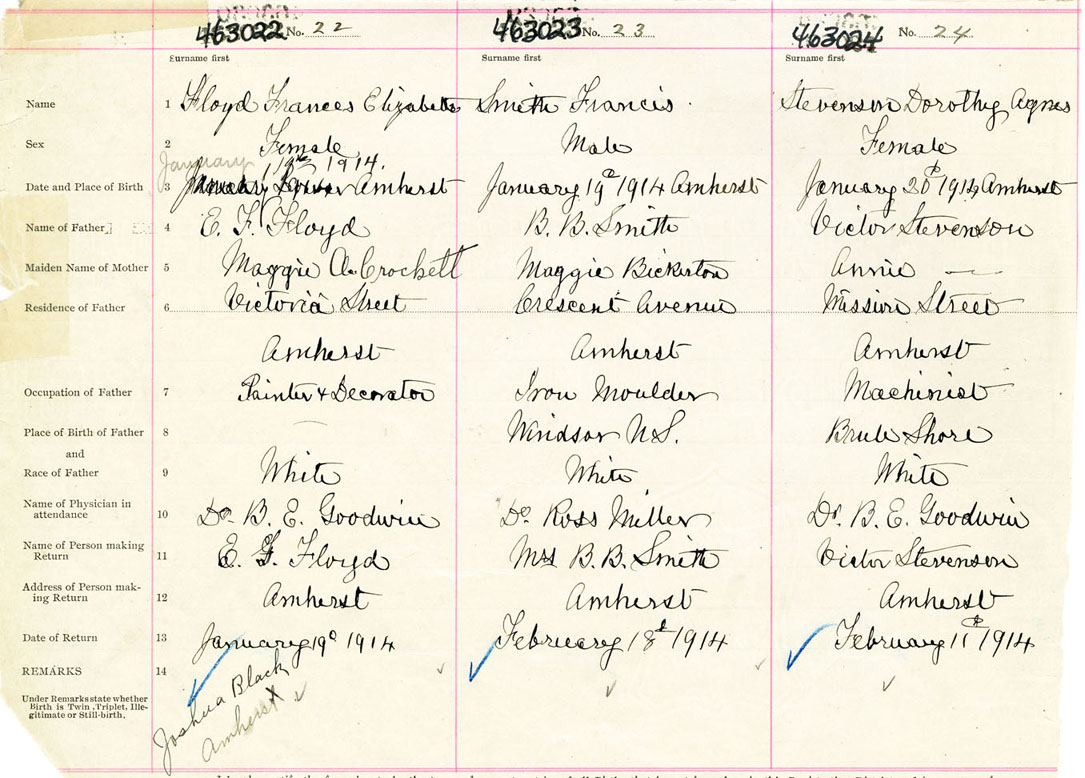 463022 No. 22 463023 No. 23 463024 No. 24
Surname first Surname first Surname first
Name 1 Floyd Frances Elizabeth Smith Francis Stevenson Dorothy Agnes
Sex 2 Female Male Female
January 19th 1914.
Date and Place of Birth 3 Amherst January 19th 1914 Amherst January 20th 1914 Amherst
Name of Father 4 E. F. Floyd B. B. Smith Victor Stevenson
Maiden Name of Mother 5 Maggie A. Crockett Maggie Bickerton Annie —
Residence of Father 6 Victoria Street Crescent Avenue Mission Street
Amherst Amherst Amherst
Occupation of Father 7 Painter & Decorator Iron Moulder Machinist
Place of Birth of Father 8 — Windsor N.S. Brule Shore
and
Race of Father 9 White White White
Name of Physician in
attendance 10 Dr. B. E. Goodwin Dr. Ross Miller Dr. B. E. Goodwin
Name of Person making
Return 11 E. F. Floyd Mrs B. B. Smith Victor Stevenson
Address of Person mak-
ing Return 12 Amherst Amherst Amherst
Date of Return 13 January 19th 1914 February 18th 1914 February 11th 1914
REMARKS 14
Under Remarks state whether
Birth is Twin, Triplet, Ille-
gitimate or Still-birth.
Joshua Black
Amherst